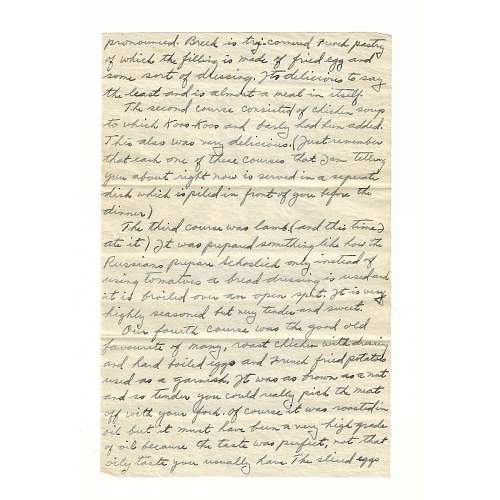 pronounced. Breek is tri-cornered French pastry
of which the filling is made of fried egg and
some sort of dressing. Its delicious to say
the least and is almost a meal in itself.
The second course consisted of chicken soup
to which Koos-Koos and barly had been added.
This also was very delicious. (Just remember
that each one of these courses that I am telling
you about right now is served in a seperate
dish which is piled in front of you before the
dinner)
The third course was lamb. (and this time I
ate it) It was prepared something like how the
Russians prepare schaslick only instead of
using tomatoes a bread dressing is used and
it is broiled over an open spit. It is very
highly seasoned but very tender and sweet.
Our fourth course was the good old
favourite of many, roast chicken with dressing
and hard boiled eggs and French fried potatoes
used as a garnish. It was as brown as a nut
and so tender you could really pick the meat
off with your fork. Of course it was roasted in
oil but it must have been a very high grade
of oil because the taste was perfect, not that
oily taste you usually have. The sliced eggs